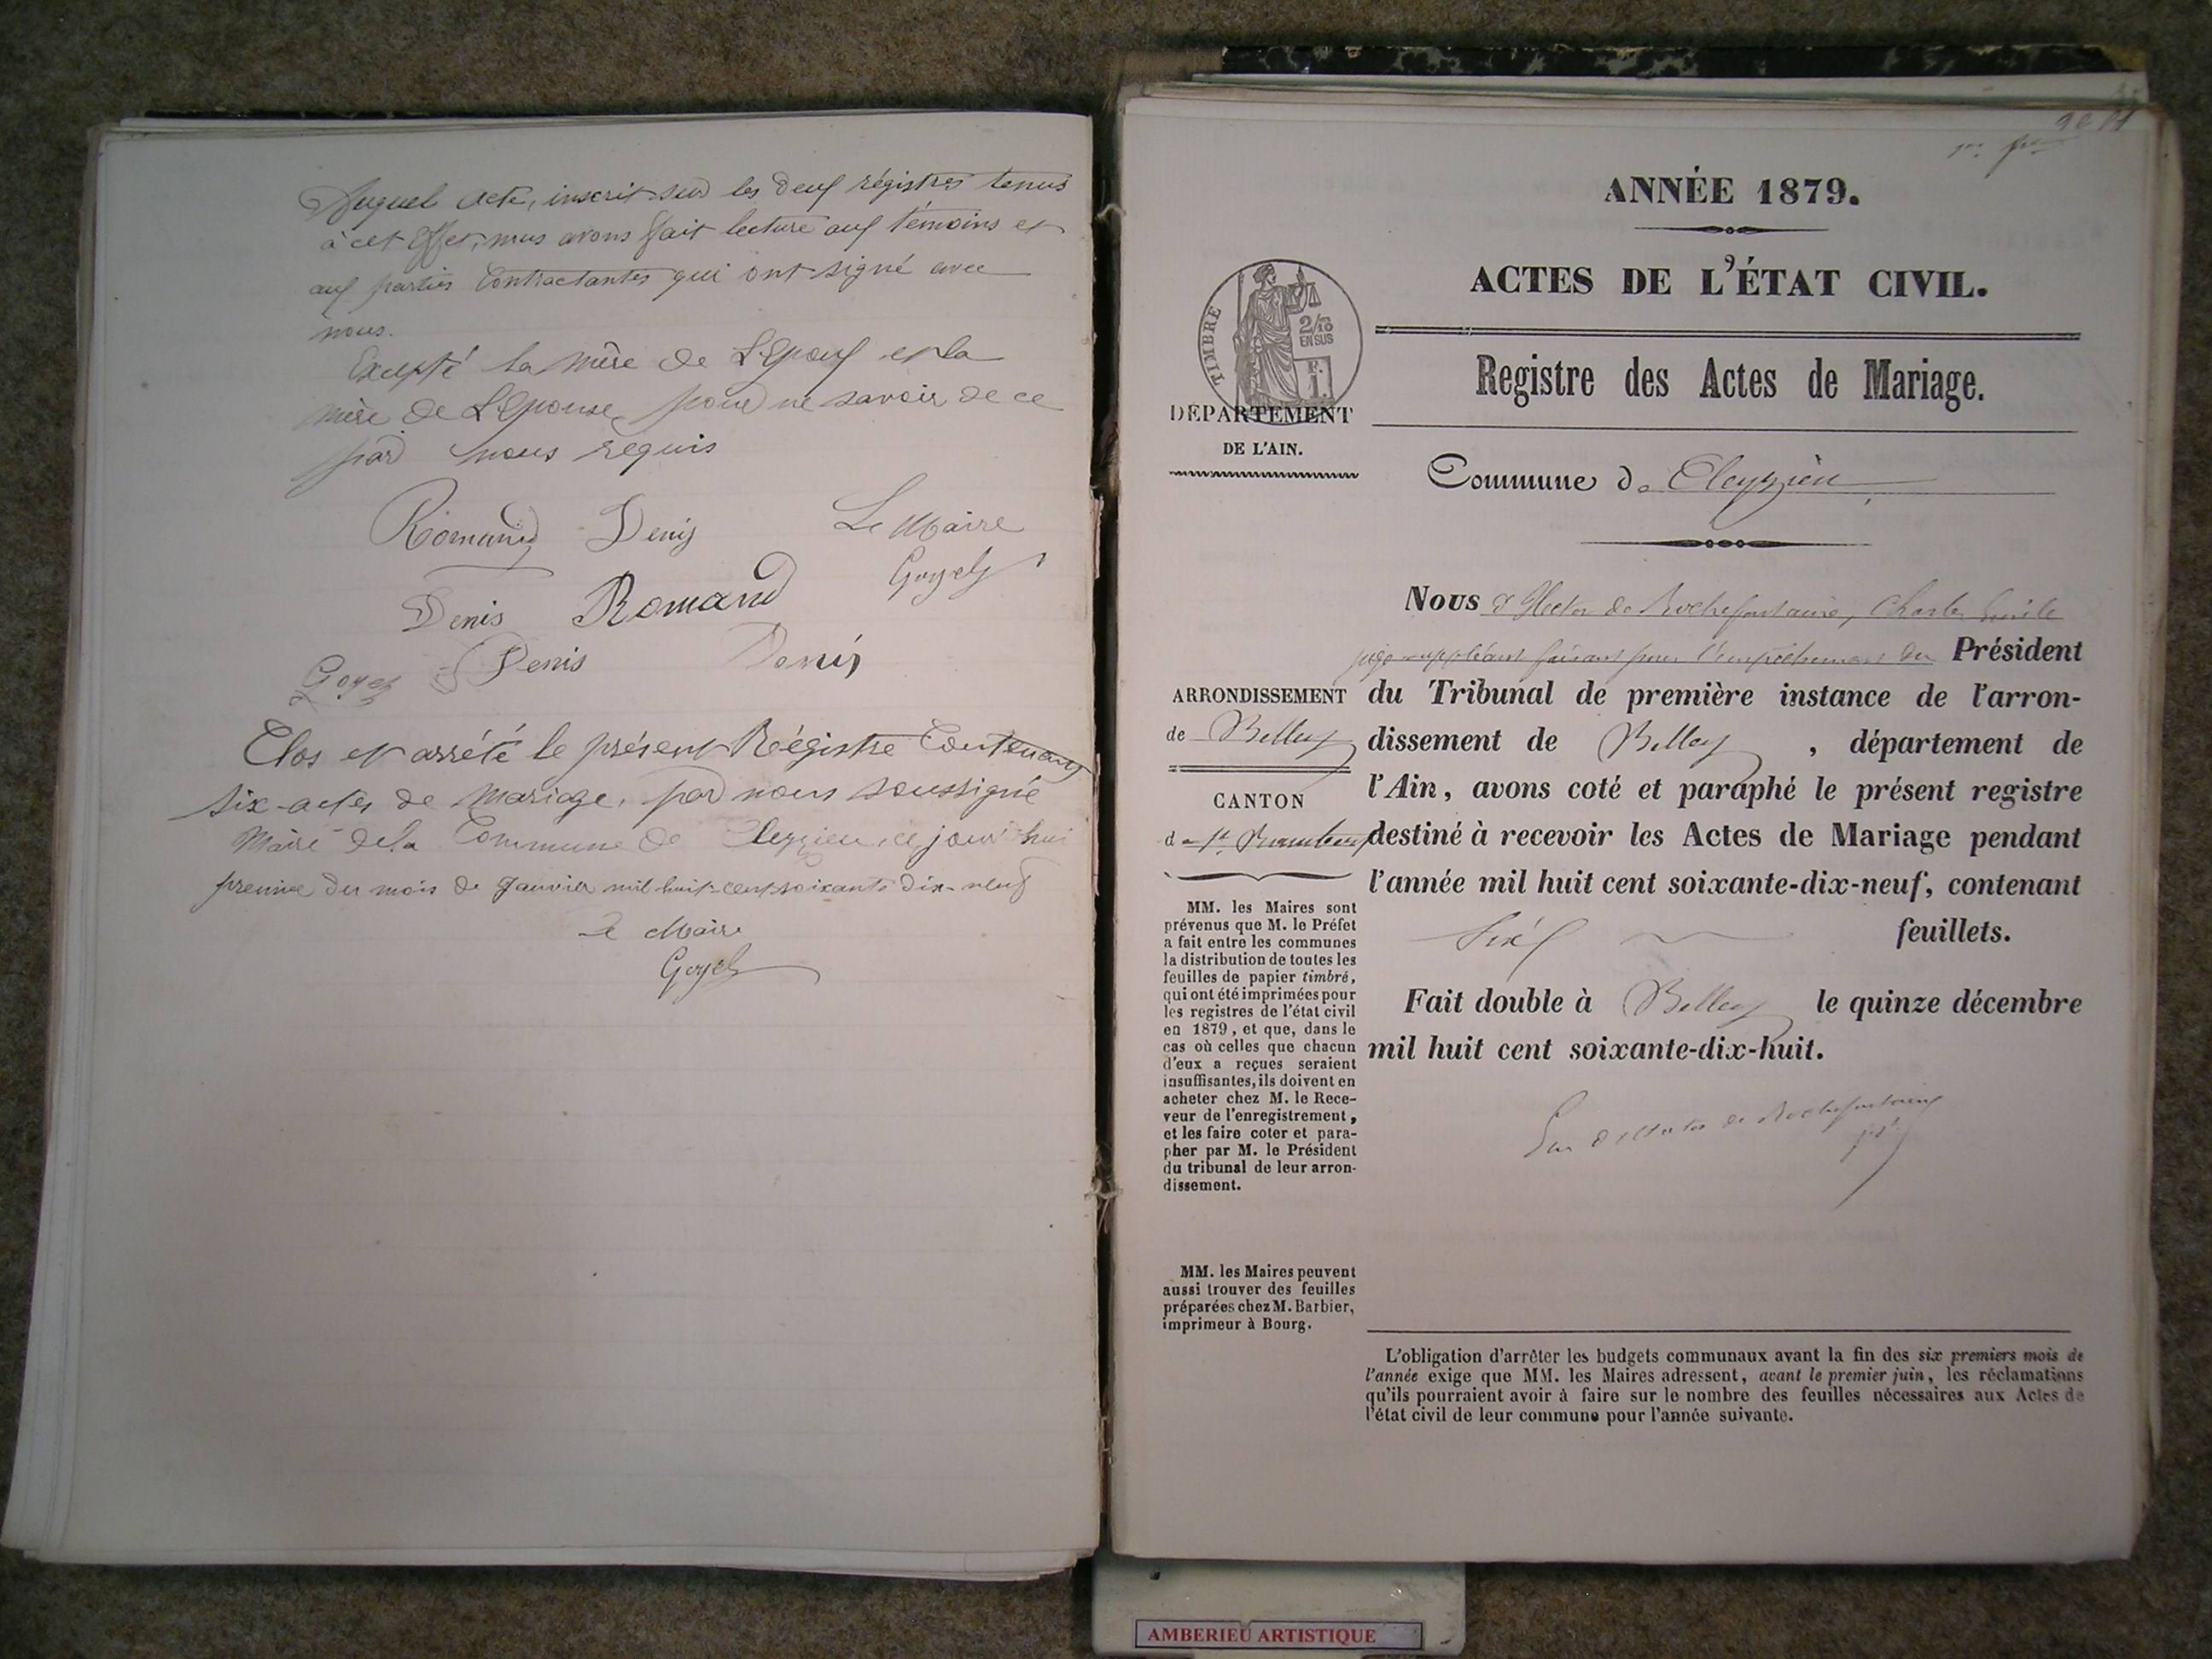 Duquel acte, inscrit sur les deux régistres tenus
à cet Effet, nous avons fait lecture aux témoins et
aux parties Contractantes qui ont signé avec
nous.
Excepté la mère de L'Epoux et la
mère de L'Epouse pour ne savoir de ce
par nous requis
Romand Denis Le Maire
Goyet
Denis Romand
Goyet Denis Denis
Clos et arrêté le présent Régistre Contenant
six actes de Mariage, par nous soussigné
Maire de la Commune de Cleyzieu, ce jourd'hui
premier du mois de Janvier mil huit-cent soixante dix-neuf
Le Maire
Goyet
ANNÉE 1879.
ACTES DE L'ÉTAT CIVIL.
TIMBRE
2/10
EN SUS
F.
1.
Registre des Actes de Mariage.
DÉPARTEMENT
DE L'AIN.
Commune de Cleyzieu
Nous d'Hector de Rochefontaine, Charles Emile
juge suppléant faisant pour l'empêchement du Président
du Tribunal de première instance de l'arron-
dissement de Belley, département de
l'Ain, avons coté et paraphé le présent registre
destiné à recevoir les Actes de Mariage pendant
l'année mil huit cent soixante-dix-neuf, contenant
Six feuillets.
Fait double à Belley le quinze décembre
mil huit cent soixante-dix-huit.
d'Hector de Rochefontaine
ARRONDISSEMENT
de Belley
CANTON
de St Rambert
MM. les Maires sont
prévenus que M. le Préfet
a fait entre les communes
la distribution de toutes les
feuilles de papier timbré,
qui ont été imprimées pour
les registres de l'état civil
en 1879, et que, dans le
cas où celles que chacun
d'eux a reçues seraient
insuffisantes, ils doivent en
acheter chez M. le Rece-
veur de l'enregistrement,
et les faire coter et para-
pher par M. le Président
du tribunal de leur arron-
dissement.
MM. les Maires peuvent
aussi trouver des feuilles
préparées chez M. Barbier,
imprimeur à Bourg.
L'obligation d'arrêter les budgets communaux avant la fin des six premiers mois de
l'année exige que MM. les Maires adressent, avant le premier juin, les réclamations
qu'ils pourraient avoir à faire sur le nombre des feuilles nécessaires aux Actes de
l'état civil de leur commune pour l'année suivante.
AMBERIEU ARTISTIQUE